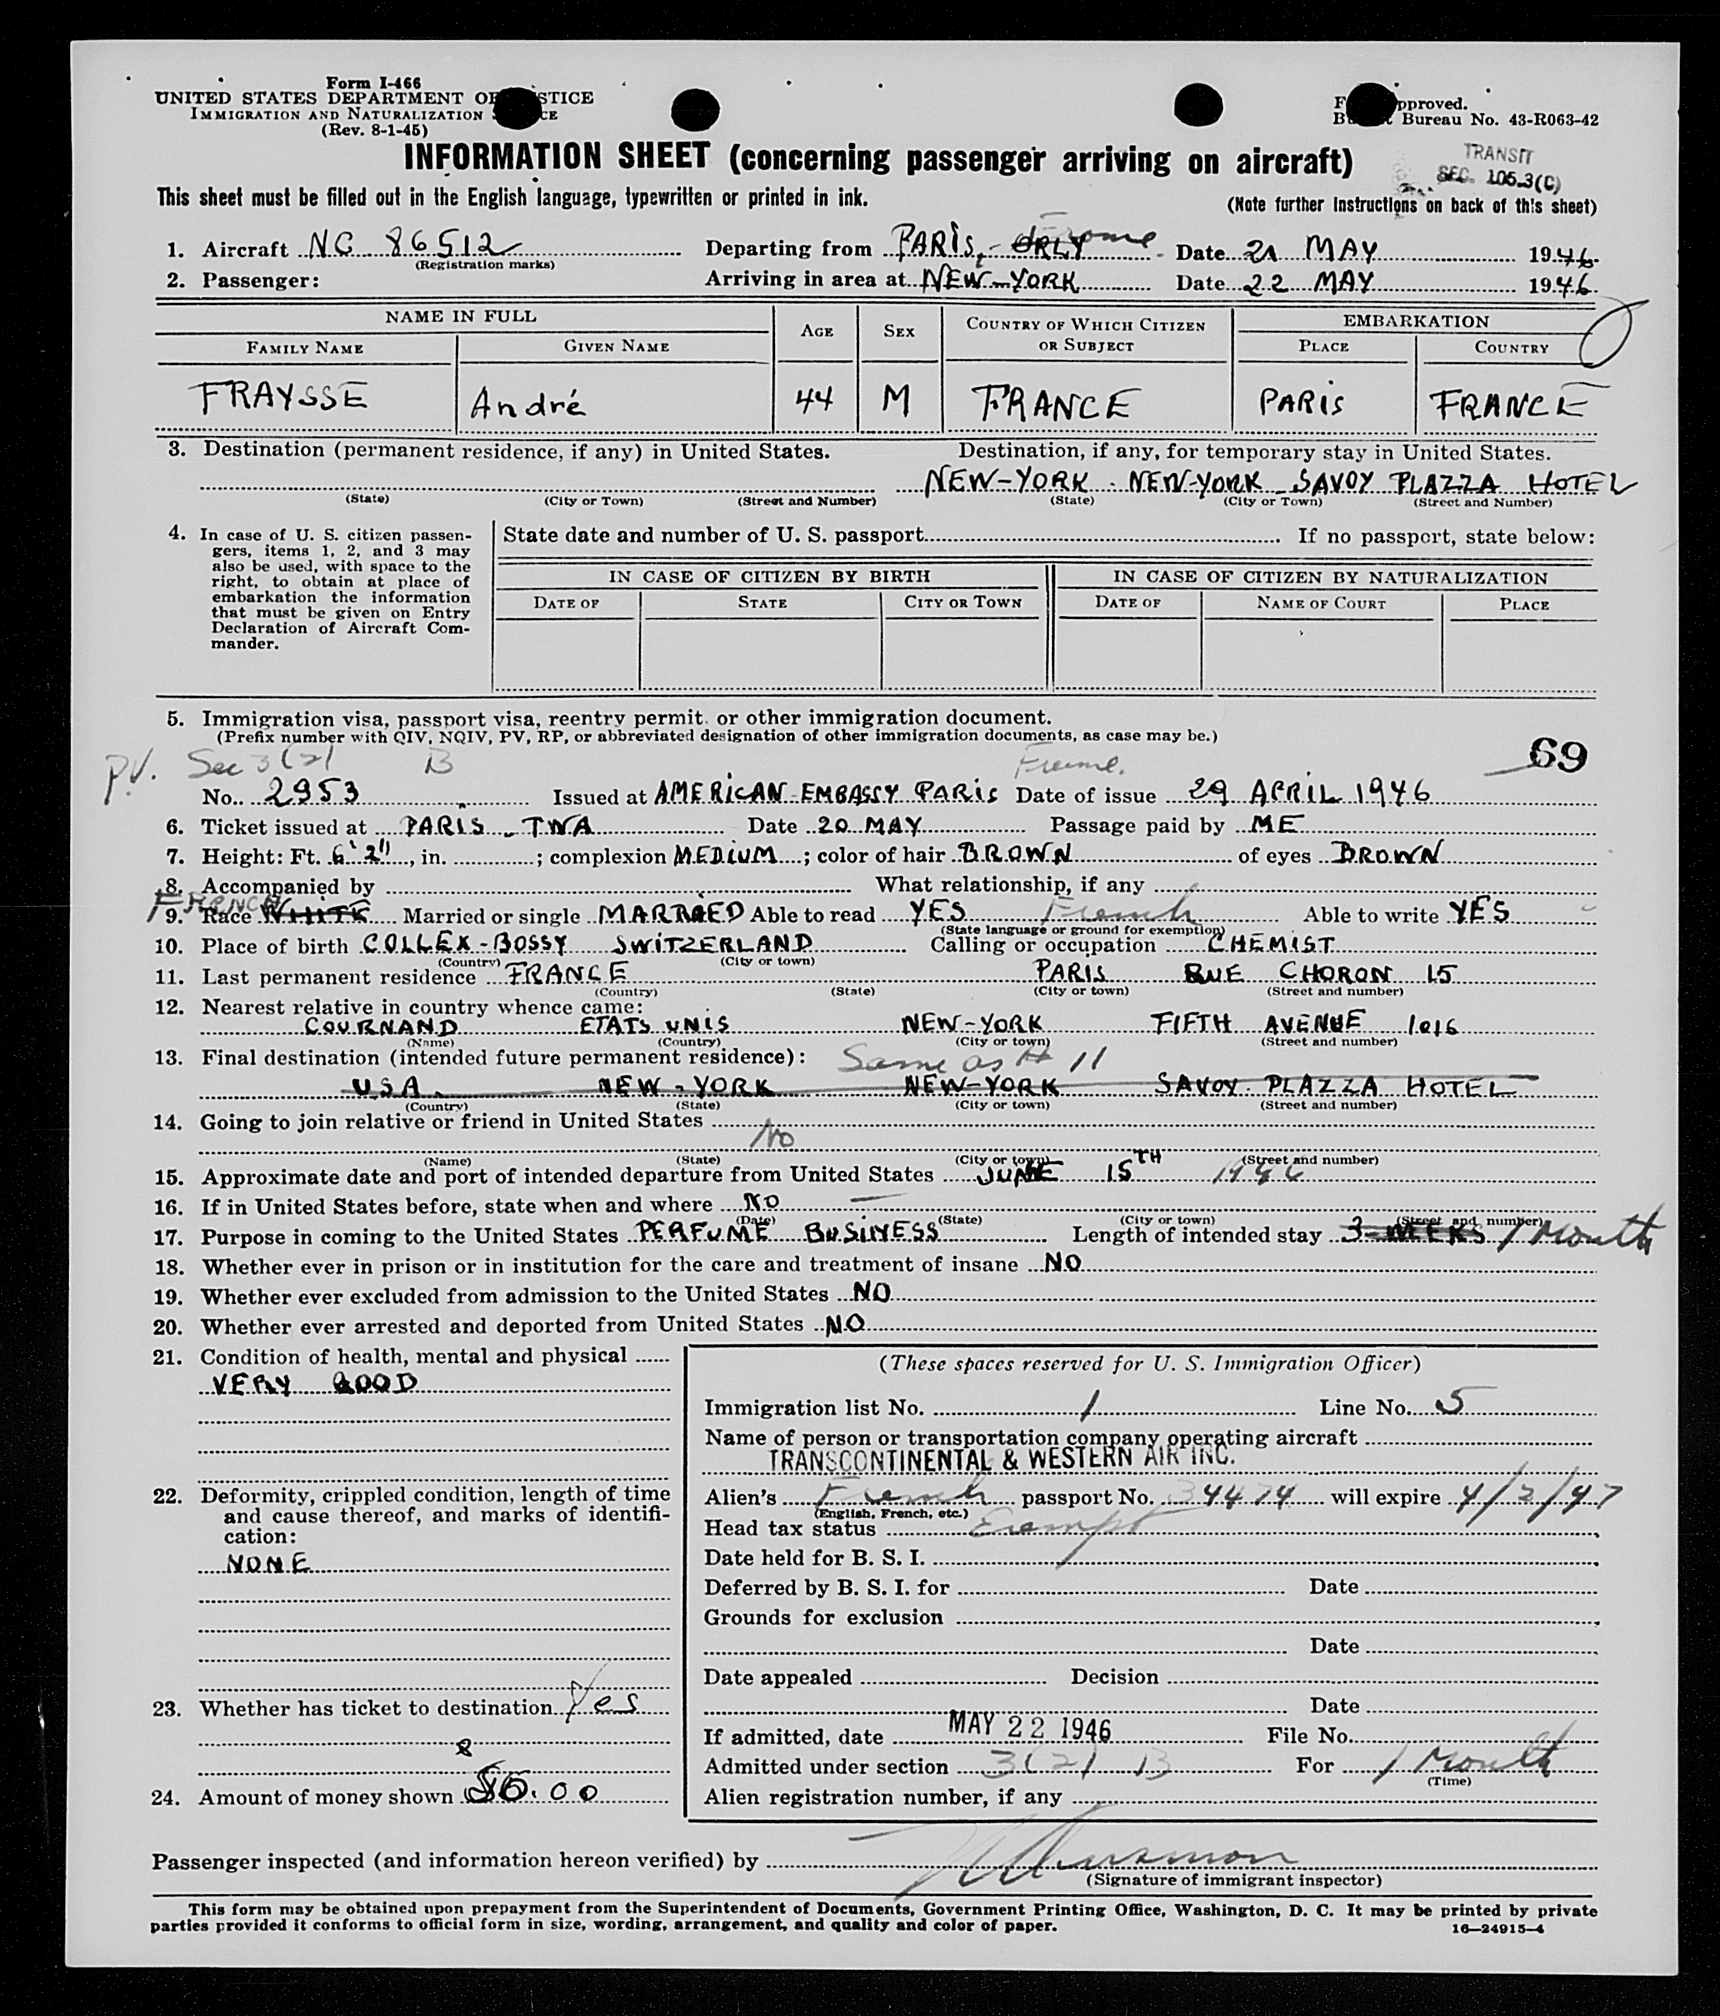 Form I-466
UNITED STATES DEPARTMENT OF JUSTICE
IMMIGRATION AND NATURALIZATION
(Rev. 8-1-45)
pproved.
Bureau No. 43-R063-42
INFORMATION SHEET (concerning passenger arriving on aircraft)
TRANSIT
SEC. 105.3(C)
This sheet must be filled out in the English language, typewritten or printed in ink.
(Note further instructions on back of this sheet)
1. Aircraft NC 86512 Departing from PARIS, - ORLY Date 21 MAY 1946
(Registration marks)
2. Passenger: Arriving in area at NEW-YORK Date 22 MAY 1946
NAME IN FULL AGE SEX COUNTRY OF WHICH CITIZEN OR SUBJECT EMBARKATION
FAMILY NAME GIVEN NAME PLACE COUNTRY
FRAYSSE André 44 M FRANCE PARIS FRANCE
3. Destination (permanent residence, if any) in United States. Destination, if any, for temporary stay in United States.
NEW-YORK. NEW-YORK - SAVOY PLAZZA HOTEL
(State) (City or Town) (Street and Number) (State) (City or Town) (Street and Number)
4. In case of U. S. citizen passen-
gers, items 1, 2, and 3 may
also be used, with space to the
right, to obtain at place of
embarkation the information
that must be given on Entry
Declaration of Aircraft Com-
mander.
State date and number of U. S. passport If no passport, state below:
IN CASE OF CITIZEN BY BIRTH IN CASE OF CITIZEN BY NATURALIZATION
DATE OF STATE CITY OR TOWN DATE OF NAME OF COURT PLACE
5. Immigration visa, passport visa, reentry permit or other immigration document.
(Prefix number with QIV, NQIV, PV, RP, or abbreviated designation of other immigration documents, as case may be.)
69
P.V. Sec 3(2) B
No. 2953 Issued at AMERICAN-EMBASSY PARIS Date of issue 29 APRIL 1946
6. Ticket issued at PARIS - TWA Date 20 MAY Passage paid by ME
7. Height: Ft. 6' 2", in. ; complexion MEDIUM ; color of hair BROWN of eyes BROWN
8. Accompanied by What relationship, if any
FRENCH
9. Race WHITE Married or single MARRIED Able to read YES French Able to write YES
(State language or ground for exemption)
10. Place of birth COLLEX-BOSSY SWITZERLAND Calling or occupation CHEMIST
(Country) (City or town)
11. Last permanent residence FRANCE PARIS RUE CHORON 15
(Country) (State) (City or town) (Street and number)
12. Nearest relative in country whence came:
COURNAND ETATS UNIS NEW-YORK FIFTH AVENUE 1016
(Name) (Country) (City or town) (Street and number)
13. Final destination (intended future permanent residence): Same as # 11
USA. NEW-YORK NEW-YORK SAVOY PLAZZA HOTEL
(Country) (State) (City or town) (Street and number)
14. Going to join relative or friend in United States
No
(Name) (State) (City or town) (Street and number)
15. Approximate date and port of intended departure from United States JUNE 15TH 1946
16. If in United States before, state when and where NO
(Date) (State) (City or town) (Street and number)
17. Purpose in coming to the United States PERFUME BUSINESS Length of intended stay 3 WEEKS 1 Month
18. Whether ever in prison or in institution for the care and treatment of insane NO
19. Whether ever excluded from admission to the United States NO
20. Whether ever arrested and deported from United States NO
21. Condition of health, mental and physical
VERY GOOD
22. Deformity, crippled condition, length of time
and cause thereof, and marks of identifi-
cation:
NONE
23. Whether has ticket to destination Yes
24. Amount of money shown
(These spaces reserved for U. S. Immigration Officer)
Immigration list No. 1 Line No. 5
Name of person or transportation company operating aircraft
TRANSCONTINENTAL & WESTERN AIR INC.
Alien's French passport No. 34474 will expire 4/2/47
(English, French, etc.)
Head tax status Exempt
Date held for B. S. I.
Deferred by B. S. I. for Date
Grounds for exclusion
Date
Date appealed Decision
Date
If admitted, date MAY 22 1946 File No.
Admitted under section 3(2) B For 1 Month
(Time)
Alien registration number, if any
Passenger inspected (and information hereon verified) by
(Signature of immigrant inspector)
This form may be obtained upon prepayment from the Superintendent of Documents, Government Printing Office, Washington, D. C. It may be printed by private
parties provided it conforms to official form in size, wording, arrangement, and quality and color of paper.
16—24915-4